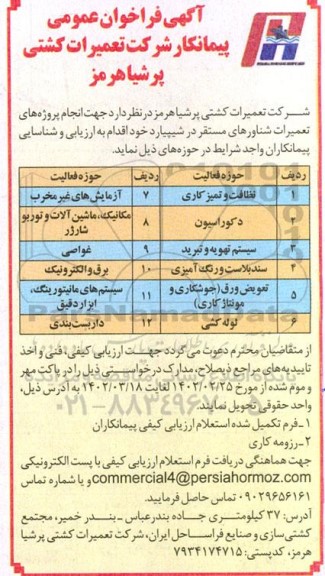 آگهی فراخوان عمومی
پیمانکار شرکت تعمیرات کشتی
پرشیا هرمز
شرکت تعمیرات کشتی پرشیا هرمز در نظر دارد جهت انجام پروژه‌های
تعمیرات شناورهای مستقر در شیپیارد خود اقدام به ارزیابی و شناسایی
پیمانکاران واجد شرایط در حوزه‌های ذیل نماید.
ردیف حوزه فعالیت ردیف حوزه فعالیت
۱ نظافت و تمیز کاری ۷ آزمایش‌های غیر مخرب
۲ دکوراسیون ۸ مکانیک، ماشین آلات و توربو شارژر
۳ سیستم تهویه و تبرید ۹ غواصی
۴ سندبلاست و رنگ آمیزی ۱۰ برق و الکترونیک
۵ تعویض ورق (جوشکاری و مونتاژ کاری) ۱۱ سیستم‌های مانیتورینگ، ابزار دقیق
۶ لوله کشی ۱۲ داربست بندی
از متقاضیان محترم دعوت می گردد جهت ارزیابی کیفی، فنی و اخذ
تاییدیه‌های مراجع ذیصلاح، مدارک درخواستی ذیل را در پاکت مهر
و موم شده از مورخ ۱۴۰۲/۰۲/۲۵ لغایت ۱۴۰۲/۰۳/۱۸ به آدرس ذیل،
واحد حقوقی تحویل نمایند.
۱-فرم تکمیل شده استعلام ارزیابی کیفی پیمانکاران
۲-رزومه کاری
جهت هماهنگی دریافت فرم استعلام ارزیابی کیفی با پست الکترونیکی
commercial4@persiahormoz.com و یا شماره تماس
۰۹۰۲۹۶۵۶۱۶۱ تماس حاصل فرمایید.
آدرس: ۳۷ کیلومتری جاده بندرعباس ـ بندر خمیر، مجتمع
کشتی سازی و صنایع فراساحل ایران، شرکت تعمیرات کشتی پرشیا
هرمز، کدپستی: ۷۹۳۴۱۷۴۷۱۵